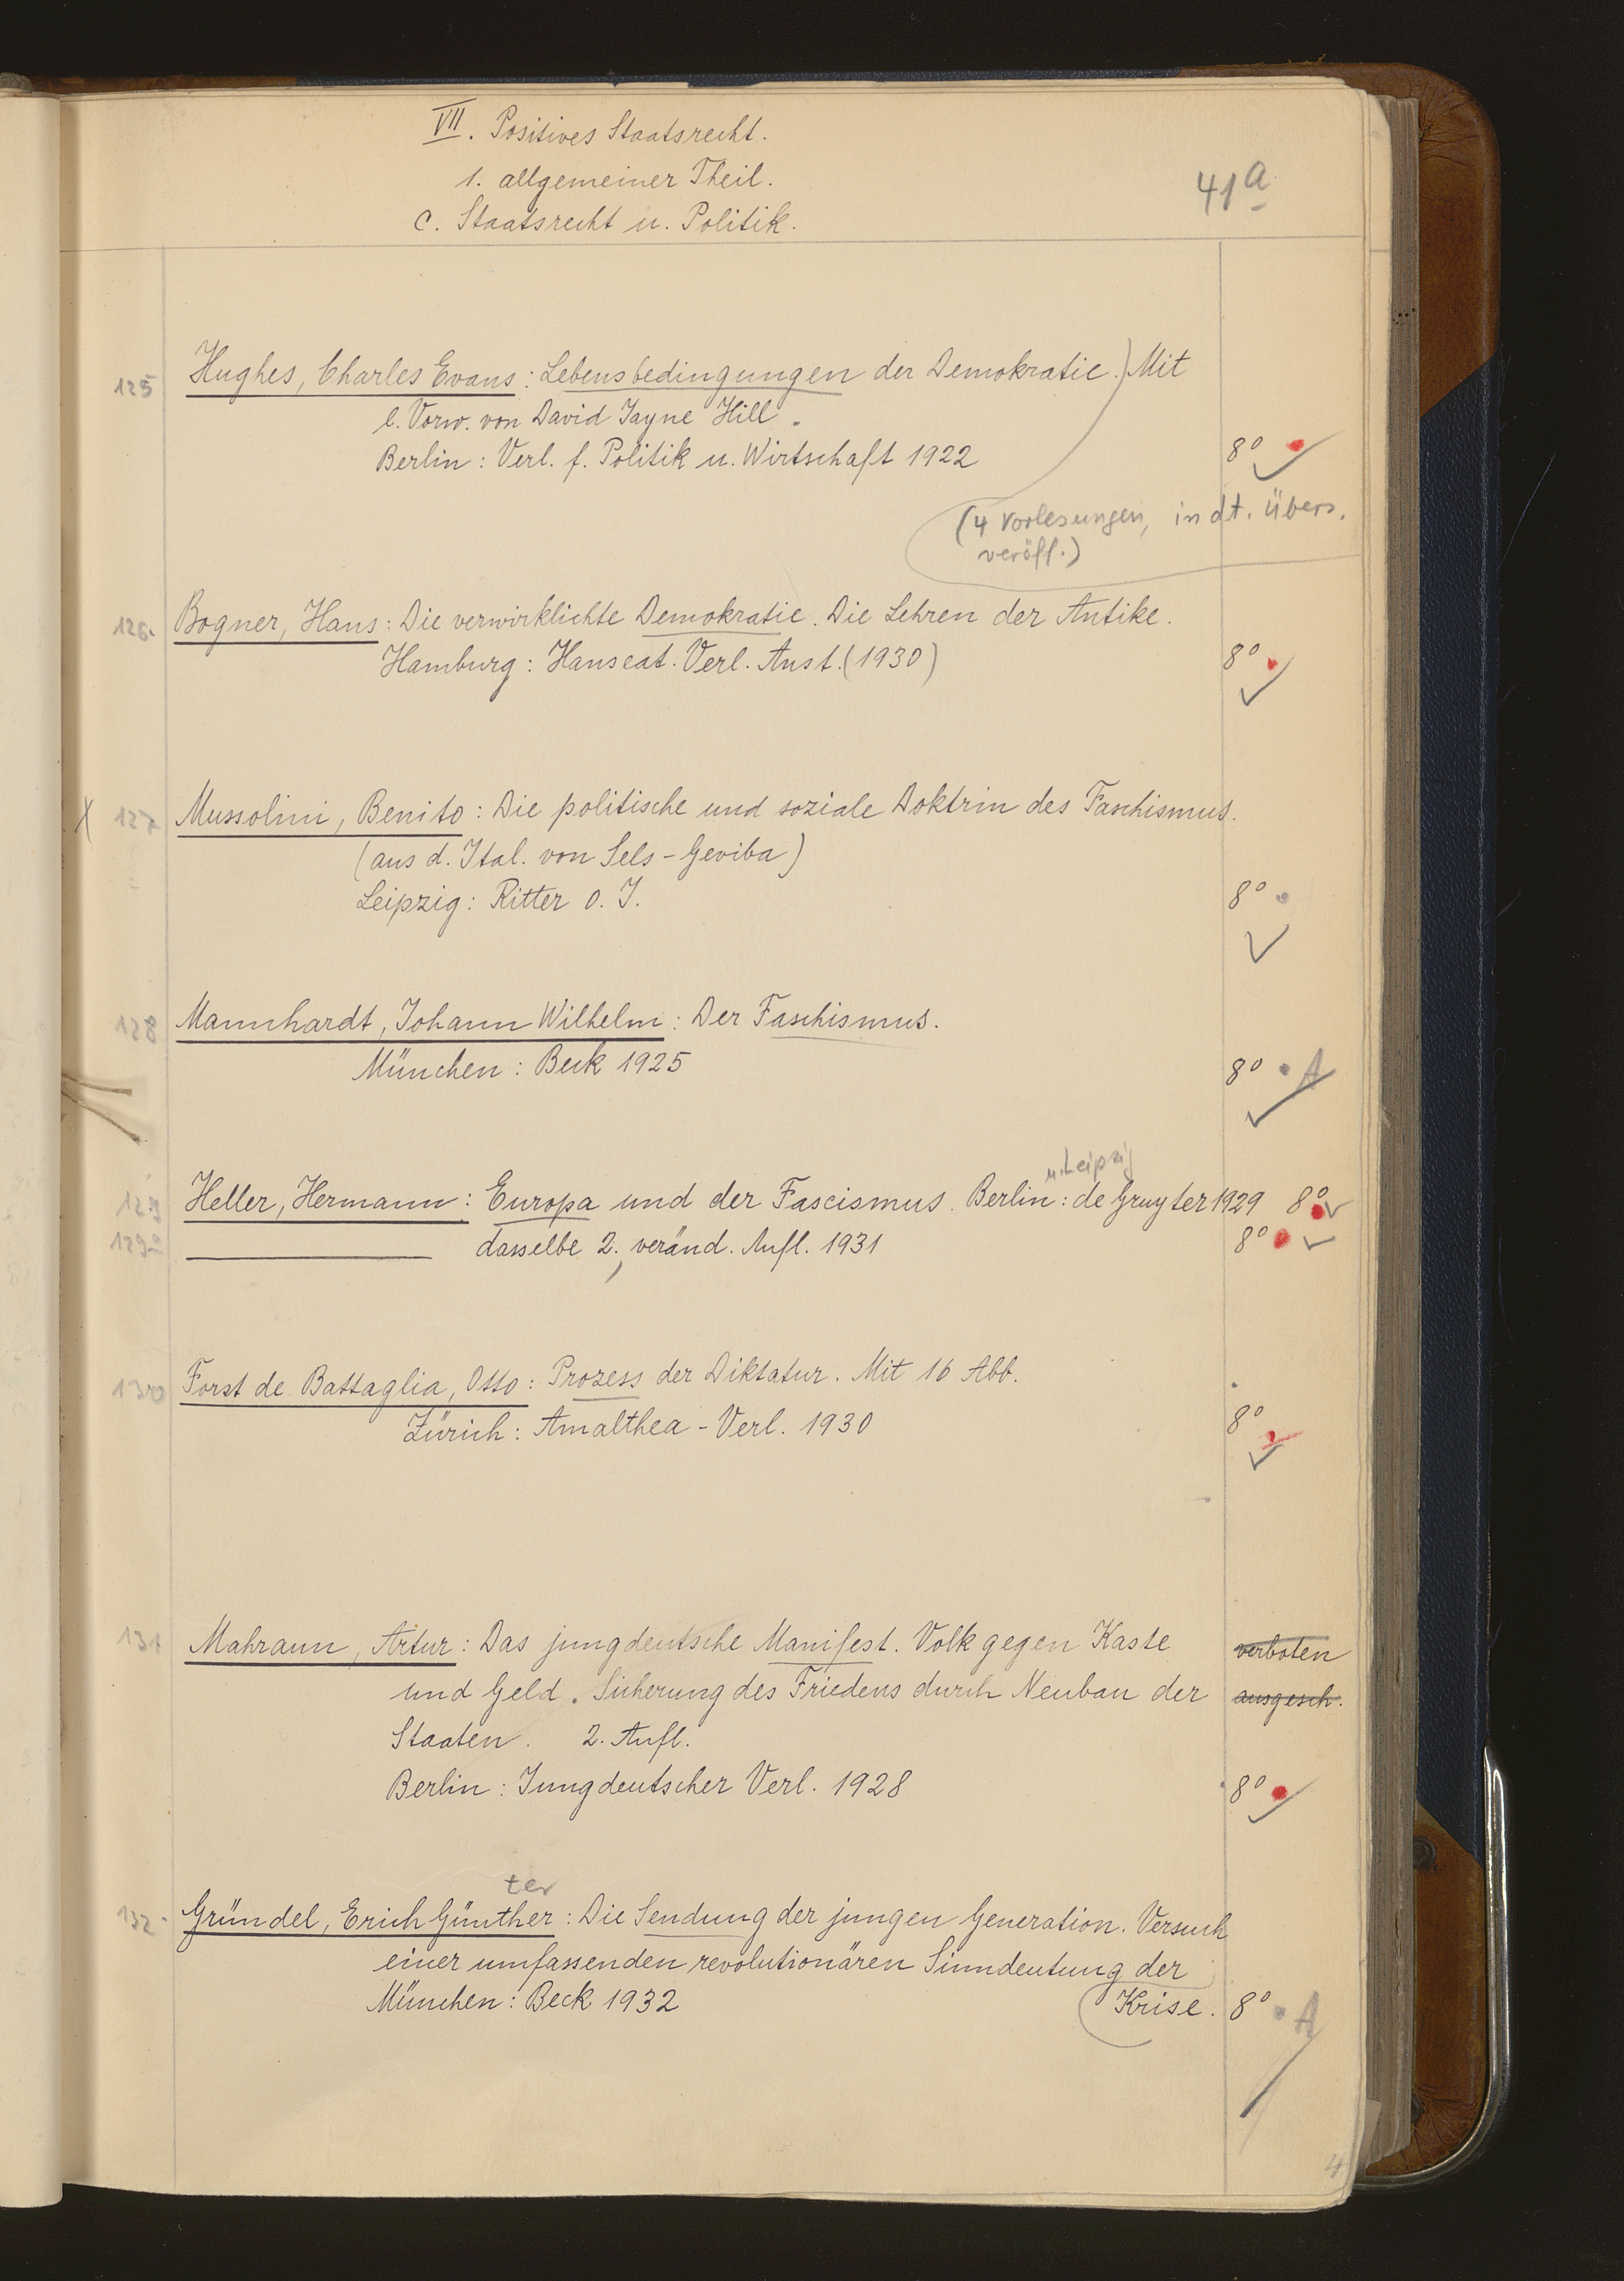 VII. Positives Staatsrecht.
1. allgemeiner Theil.
c. Staatsrecht u. Politik.
41a
125 Hughes, Charles Evans: Lebensbedingungen der Demokratie.) Mit
e. Vorw. von David Jayne Hill.
Berlin: Verl. f. Politik u. Wirtschaft 1922 8°
(4 Vorlesungen, in dt. Übers.
veröff.)
126. Bogner, Hans: Die verwirklichte Demokratie. Die Lehren der Antike.
Hamburg: Hanseat. Verl. Anst. (1930) 8°
X 127 Mussolini, Benito: Die politische und soziale Doktrin des Faschismus.
(aus d. Ital. von Sels-Geviba)
Leipzig: Ritter o. J. 8°
128 Mannhardt, Johann Wilhelm: Der Faschismus.
München: Beck 1925 8° A
u. Leipzig
129 Heller, Hermann: Europa und der Fascismus. Berlin: de Gruyter 1929 8°
129a dasselbe 2., veränd. Aufl. 1931 8°
130 Forst de Battaglia, Otto: Prozess der Diktatur. Mit 16 Abb.
Zürich: Amalthea-Verl. 1930 8°
131 Mahraun, Artur: Das jungdeutsche Manifest. Volk gegen Kaste verboten
und Geld. Sicherung des Friedens durch Neubau der ausgesch.
Staaten. 2. Aufl.
Berlin: Jungdeutscher Verl. 1928 8°
ter
132. Gründel, Erich Günther: Die Sendung der jungen Generation. Versuch
einer umfassenden revolutionären Sinndeutung der
München: Beck 1932 (Krise. 8° A
4